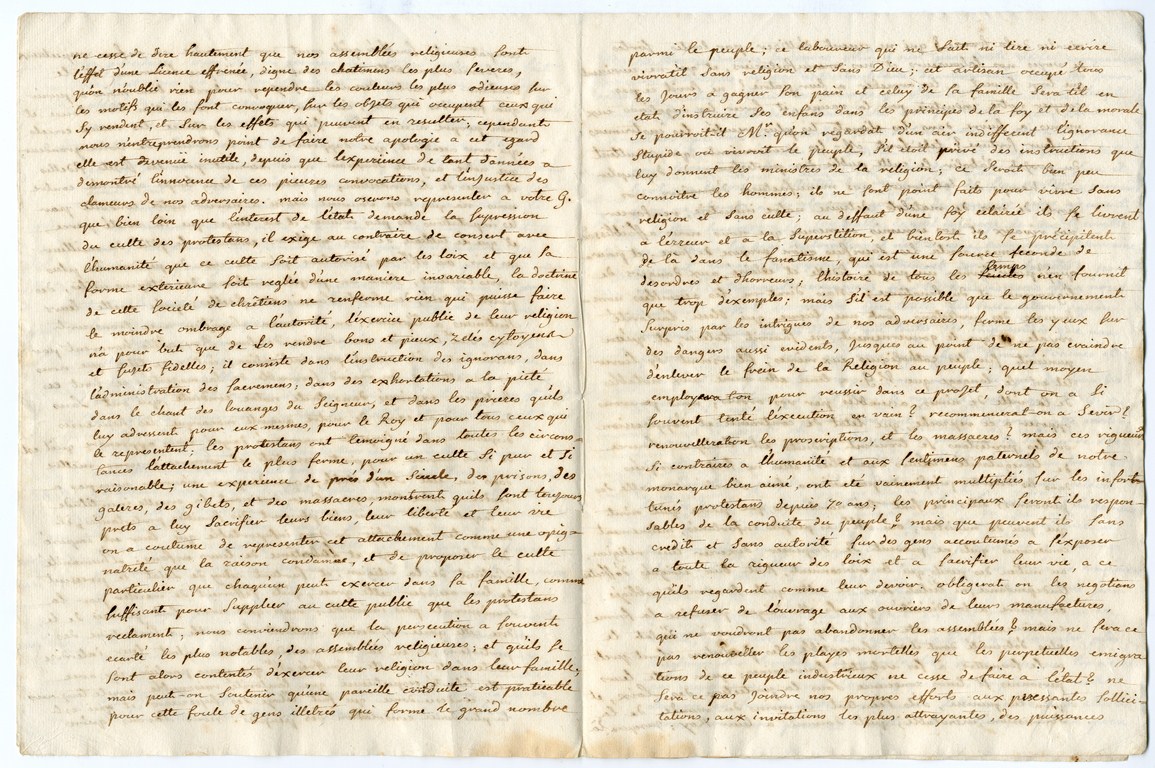 ne cesse de dire hautement que nos assemblées religieuses sont
l'effet d'une Licence effrenée, digne des chatimens les plus severes,
qu'on n'oublie rien pour rependre les couleurs les plus odieuses sur
les motifs qui les font convoquer, sur les objets qui occupent ceux qui
s'y rendent, et sur les effets qui peuvent en resulter; cependant
nous n'entreprendrons point de faire notre apologie a cet egard
elle est devenue inutile, depuis que l'experience de tant d'années a
demontré l'innocence de ces pieuses convocations, et l'injustice des
clameurs de nos adversaires. mais nous oserons representer a votre G.
que bien loin que l'interest de l'état demande la supression
du culte des protestans, il exige au contraire de consert avec
l'humanité que ce culte soit autorisé par les loix et que sa
forme exterieure soit reglée d'une maniere invariable, la doctrine
de cette societé de chrêtiens ne renferme rien qui puisse faire
le moindre ombrage a l'autorité, l'exercice public de leur religion
n'a pour but que de les rendre bons et pieux, zelés cytoyens
et sujets fidelles; il consiste dans l'instruction des ignorans, dans
l'administration des sacremens; dans des exhortations a la pieté
dans le chant des louanges du Seigneur, et dans les prieres qu'ils
luy adressent pour eux mesmes, pour le Roy et pour tous ceux qui
le representent; les protestans ont temoigné dans toutes les circons-
tances l'attachement le plus ferme, pour un culte si pur et si
raisonable; une experience de prés d'un Siecle, des prisons, des
galeres, des gibets, et des massacres, montrent qu'ils sont toujours
prets a luy sacrifier leurs biens, leur liberté et leur vie
on a coutume de representer cet attachement comme une opig-
natreté que la raison condamne, et de proposer le culte
particulier que chaqu'un peut exercer dans sa famille, comme
suffisant pour suppleer au culte public que les protestans
reclament; nous conviendrons que la persecution a souvent
ecarté les plus notables des assemblées religieuses; et qu'ils se
sont alors contentés d'exercer leur religion dans leur famille;
mais peut-on soutenir qu'une pareille conduite est praticable
pour cette foule de gens illetrés qui forme le grand nombre
parmi le peuple; ce laboureur qui ne sait ni lire ni ecrire
vivrat'il sans religion et sans Dieu; cet artisan occupé tous
les jours a gagner son pain et celuy de sa famille sera t'il en
etat d'instruire ses enfans dans les principes de la foy et de la morale
se pourroit-il M. qu'on regardat d'un air indifferent l'ignorance
stupide ou vivroit le peuple, s'il etoit privé des instructions que
luy donnent les ministres de la religion; ce seroit bien peu
connoitre les hommes; ils ne sont point faits pour vivre sans
religion et sans culte; au deffaut d'une foy eclairée ils se livrent
a l'erreur et a la superstition, et bientot ils se précipitent
de la dans le fanatisme, qui est une source feconde de
desordres et d'horreurs; l'histoire de tous les temps n'en fournit
que trop d'exemples; mais s'il est possible que le gouvernement
surpris par les intrigues de nos adversaires, ferme les yeux sur
des dangers aussi evidents, jusques au point de ne pas craindre
d'enlever le frein de la Religion au peuple; quel moyen
employera ton pour reussir dans ce projet, dont on a si
souvent tenté l'execution en vain? recommencerat-on a sevir?
renouvelleration les proscriptions, et les massacres? mais ces rigueurs
si contraires a l'humanité et aux sentimens paternels de notre
monarque bien aimé, ont eté vainement multipliés sur les infor-
tunés protestans depuis 70 ans; les principaux seront ils respon-
sables de la conduite du peuple? mais que peuvent ils sans
credit et sans autorité sur des gens accoutumés a s'exposer
a toute la rigueur des loix et a sacrifier leur vie, a ce
qu'ils regardent comme leur devoir, obligerat on les negotians
a refuser de l'ouvrage aux ouvriers de leurs manufactures,
qui ne voudront pas abandonner les assemblées? mais ne sera ce
pas renouveller les playes mortelles que les perpetuelles emigra-
tions de ce peuple industrieux ne cesse de faire a l'état? ne
sera ce pas joindre nos propres efforts aux pressantes sollici-
tations, aux invitations les plus attrayantes, des puissances